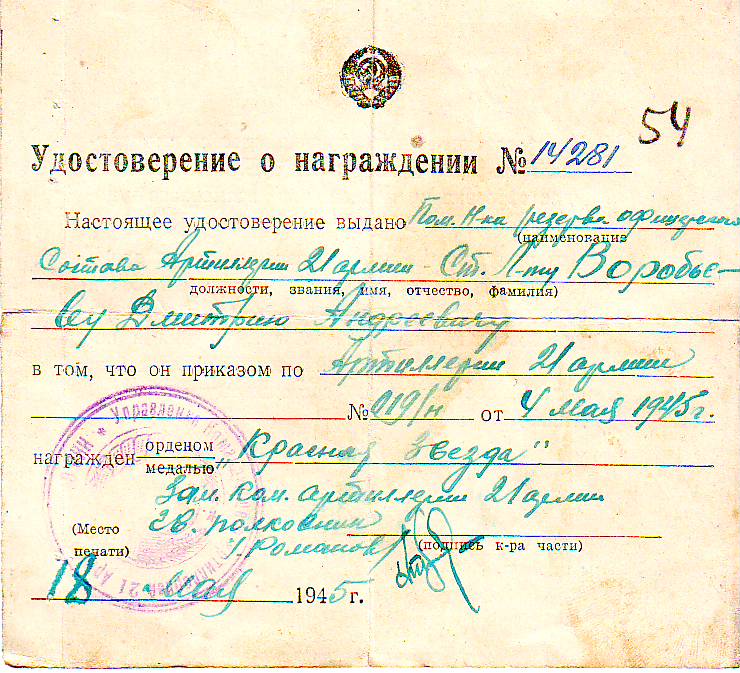 54
Удостоверение о награждении № 14281
Настоящее удостоверение выдано Пом. Н-ка резерва офицерского
(наименование
Состава Артиллерии 21 армии - Ст. Л-ту Воробье-
должности, звания, имя, отчество, фамилия)
ву Дмитрию Андреевичу
в том, что он приказом по Артиллерии 21 армии
№ 019/н от 4 мая 1945 г.
награжден орденом „Красная Звезда"
медалью
Зам. ком. артиллерии 21 армии
Гв. полковник
(Место
печати)
/Романов/
(подпись к-ра части)
18 мая 1945 г.
Управление